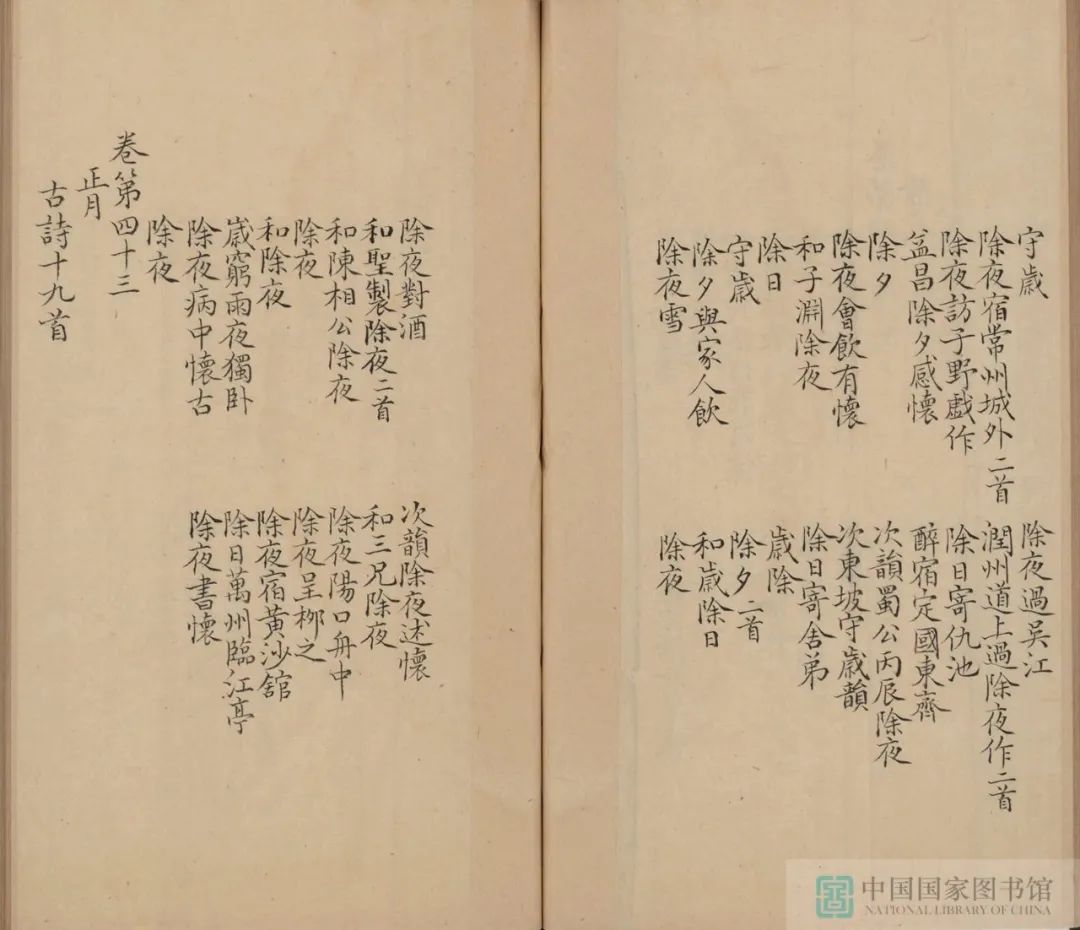 守歳
除夜過吳江
除夜宿常州城外二首
潤州道上過除夜作二首
除夜訪子野戯作
除日寄仇池
益昌除夕感懷
醉宿定國東齊
除夕
次韻蜀公丙辰除夜
除夜會飲有懷
次東坡守歳韻
和子淵除夜
除日寄舍弟
除日
歳除
守歳
除夕二首
除夕與家人飲
和歳除日
除夜雪
除夜
除夜對酒
次韻除夜述懷
和聖製除夜二首
和三兄除夜
和陳相公除夜
除夜陽口舟中
除夜
除夜呈栁之
和除夜
除夜宿黃沙舘
歳窮雨夜獨卧
除日萬州臨江亭
除夜病中懷古
除夜書懷
除夜
卷第四十三
正月
古詩十九首
中国国家图书馆
NATIONAL LIBRARY OF CHINA